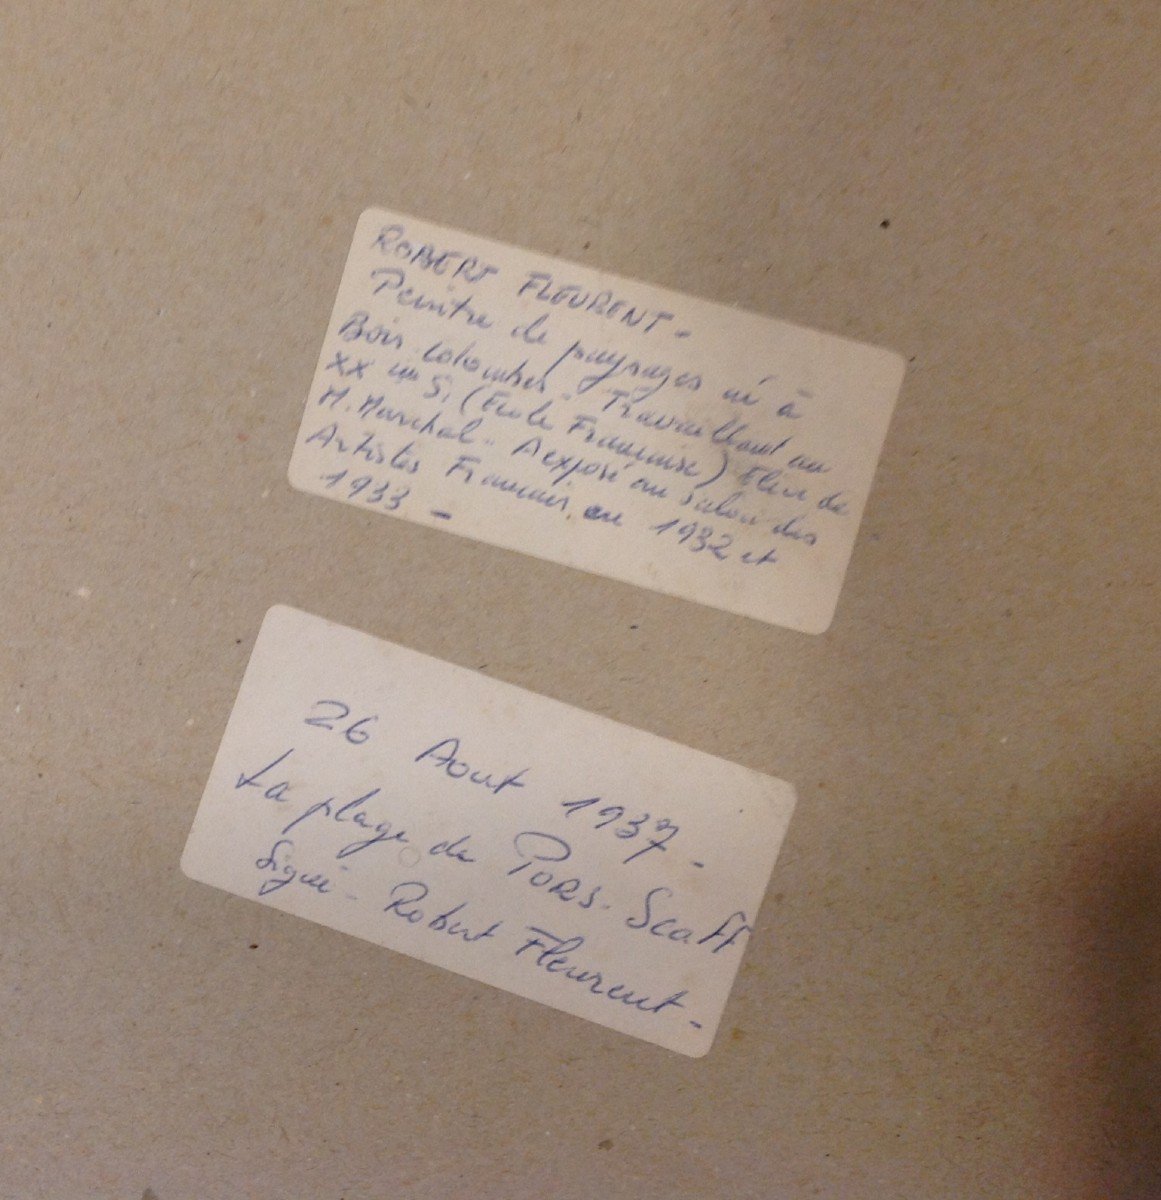 ROBERT FLEURENT -
Peintre de paysages né à
Bois colombes - Travaillant au
XX em S. (Ecole Française) Elève de
M. Marchal - A exposé au Salon des
Artistes Francais en 1932 et
1933 -
26 Aout 1937 -
La plage de PORS. Scaff
Signé - Robert Fleurent -